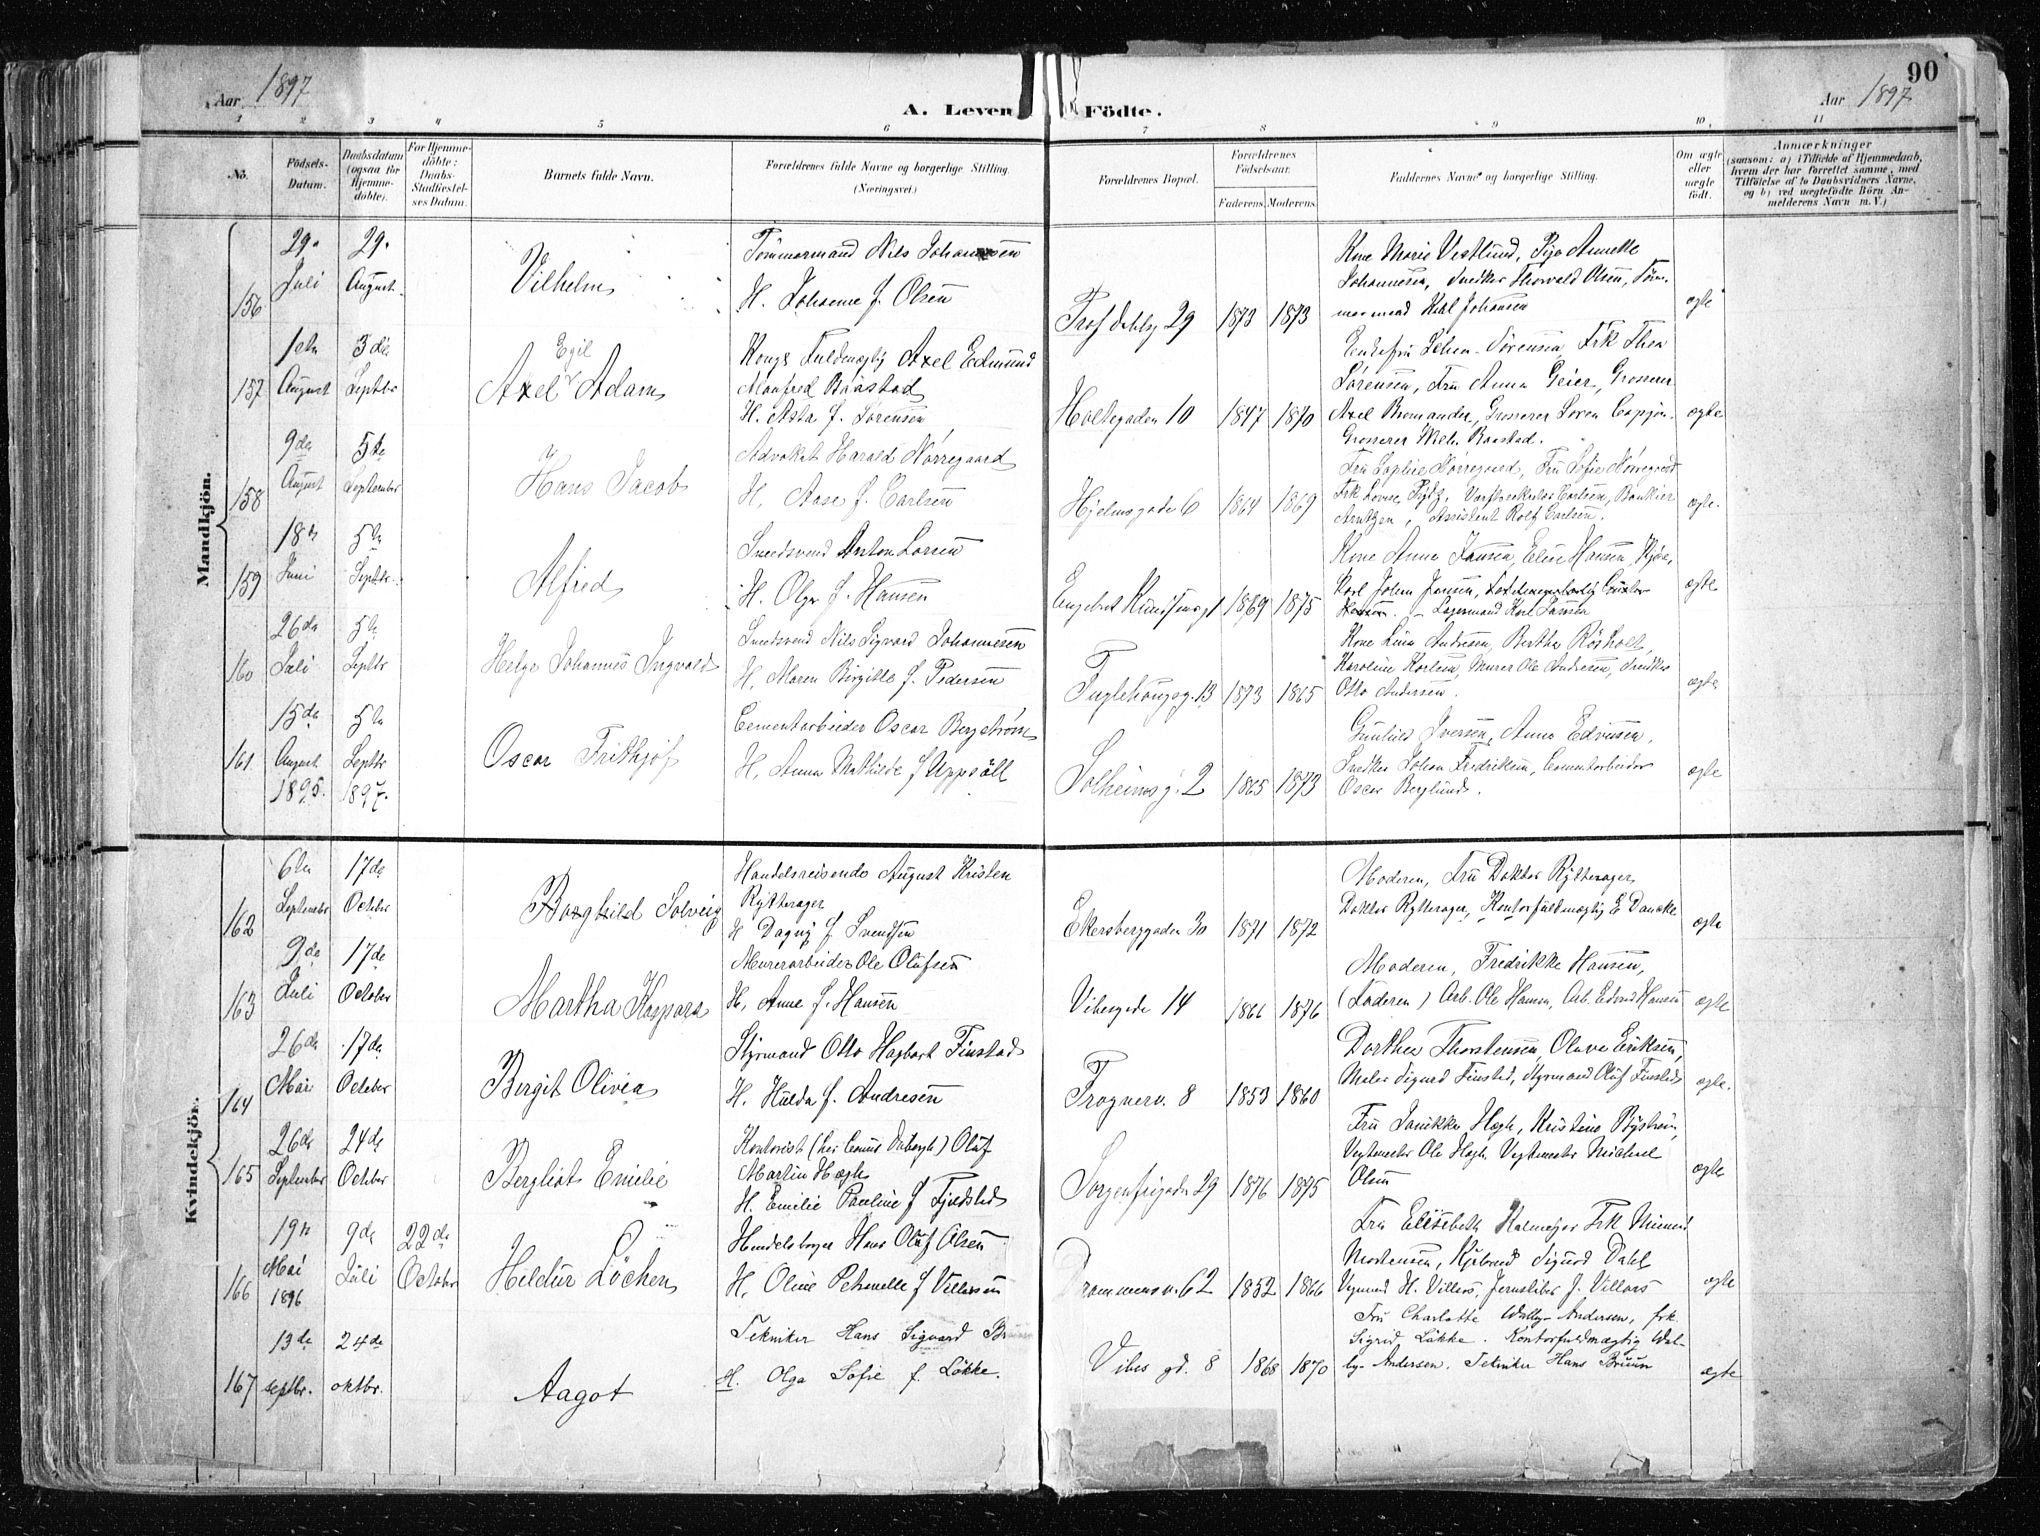 90
Aar 1897
Aar 1897
A. Leven Födte.
1 2 3 4 5 6 7 8 9 10 11
No.
Födsels-Datum.
Daabsdatum (ogsaa for Hjemme-döbte).
For Hjemme-döbte: Daabs-Stadfæstel-ses Datum.
Barnets fulde Navn.
Forældrenes fulde Navne og borgerlige Stilling.
(Næringsvei.)
Forældrenes Bopæl.
Forældrenes Födselsaar.
Faderens. Moderens.
Faddernes Navne og borgerlige Stilling.
Om ægte eller uægte födt.
Anmærkninger
(saasom: a) i Tilfælde af Hjemmedaab, hvem der har forrettet samme, med Tilföielse af to Daabsvidners Navne, og b) ved uægtefödte Börn An-melderens Navn m. V.)
Mandkjön.
156 29. Juli 29. August. Vilhelm
Tömmermand Nils Johannesen
H. Johanne f. Olsen
Prof Dahlsg 29 1873 1873
Kone Marie Vestlund, Pige Annette
Johannesen, Snedker Thorvald Olsen, Töm-
mermand Karl Johansen
ægte
157 1ste August 3die Septbr Axel Egil Adam
Kongs Fuldmægtig Axel Edmund
Manfred Baastad
H. Asta f. Sørensen
Holtegaden 10 1847 1870
Enkefru Sørensen, Frk Thea
Sørensen, Fru Anna Geier, Grosserer
Axel Bromander, Grosserer Søren
Grosserer Wilh. Baastad.
ægte
158 9de August 5te September Hans Jacob
Advokat Harald Nørregaard
H. Aase f. Carlsen
Hjelmsgade 6 1864 1869
Fru Sophie Nørregaard, Fru Sofie Nørregaard
Frk Lovise Pytz, Carlsen, Bankier
Arntzen, Assistent Rolf Carlsen.
ægte.
159 18de Juni 5te Septbr. Alfred
Smedsvend Anton Larsen
H. Olga f. Hansen
1869 1875
Kone Anna Jansen, Elise Hansen,
Karl Johan Jansen,
Lagermand Karl Jansen
ægte
160 26de Juli 5te Septbr Helge Johannes Ingvald
Smedsvend Nils Sigvard Johannesen
H. Maren Birgitte f. Pedersen
Fuglehaugsg. 13 1873 1865
Kone Lina Andresen, Berthe Røsholt,
Karoline Karlsen, Murer Ole Andresen, Snedker
Otto Andersen.
ægte
161 15de August 1895. 5te Septbr 1897. Oscar Frithjof
Cementarbeider Oscar Bergstrøm
H. Anna Mathilde f Uppsäll
Solheimsg. 2 1865 1873
Gunhild Iversen, Anna Edvinsen,
Snedker Johan Fredriksen, Cementarbeider
Oscar Berglund.
ægte
Kvindekjön.
162 6te September 17de October Borghild Solveig
Handelsreisende August Kristen
Rytterager
H Dagny f. Svendsen
Ekersberggaden 30 1871 1872
Moderen, Fru Doktor Rytterager,
Doktor Rytterager, Kontorfuldmægtig E Dancke
ægte
163 9de Juli 17de October Martha Kaspara
Murerarbeider Ole Olufsen
H. Anne f. Hansen
Vibesgade 14 1866 1876
Moderen, Fredrikke Hansen,
(Faderen) Arb. Ole Hansen, Arb. Edvard Hansen
ægte
164 26de Mai 17de October Bergit Olivia
Styrmand Otto Hagbart Finstad
H. Hulda f. Andresen
Frognerv. 8 1853 1860
Dorthea Thorstensen, Olava Eriksen,
Maler Sigurd Finstad, Styrmand Oluf Finstad
ægte.
165 26de September 24de October Bergliot Emilie
Kontorist Oluf
Martin Høgh
H. Emilie Pauline f Fjeldstad
Sorgenfrigaden 29 1876 1875
Fru Janikke Høgh, Kristine Byström,
Vegtmester Ole Høgh, Vegtmester Michael
Olsen
ægte
166 19de Mai 1896 9de Juli 22de October Hildur Löchen
Handelsborger Hans Oluf Olsen
H. Oline Petronelle f Villassen
Drammensv. 62 1852 1866
Fru Elisabeth Kalmeyer Frk
Mortensen, Sigurd Dahl
H. Villars, J. Villars
ægte
167 13de septbr. 24de oktbr. Aagot
Tekniker Hans Sigvard
H. Olga Sofie f. Løkke.
Vibes gd. 8 1868 1870
Fru Charlotte Walby-Andersen, frk.
Sigrid Løkke. Kontorfuldmægtig Wal-
by-Andersen. Tekniker Hans Bruun
ægte